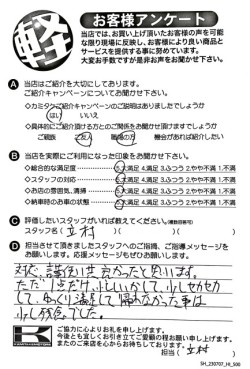 軽
お客様アンケート
当店では、お買い上げ頂いたお客様の声を可能
な限り現場に反映し、お客様により良い商品と
サービスを提供する事に努めています。
大変お手数ですが是非お声をお聞かせ下さい。
A 当店はご紹介を大切にしております。
ご紹介キャンペーンについてお聞かせ下さい。
◇カミタケご紹介キャンペーンのご説明はありましたでしょうか
はい いいえ
◇具体的にご紹介頂ける方とのご関係をお聞かせ頂けますでしょうか
ご親族 ご友人 職場の方 機会があれば紹介したい
B 当店を実際にご利用になった印象をお聞かせ下さい。
◇総合的な満足度 5.大満足 4.満足 3.ふつう 2.やや不満 1.不満
◇スタッフの対応 5.大満足 4.満足 3.ふつう 2.やや不満 1.不満
◇お店の雰囲気、清掃 5.大満足 4.満足 3.ふつう 2.やや不満 1.不満
◇納車時のお車の状態 5.大満足 4.満足 3.ふつう 2.やや不満 1.不満
C 評価したいスタッフがいれば教えてください。(複数回答可)
スタッフ名( 立村 )
D 担当させて頂きましたスタッフへのご指摘、ご指導メッセージを
お願いします。応援メッセージもぜひお願いします。
対応、説明共 良かったと思います。
ただ1点だけ、忙しいかして、少しせかせか
して、ゆっくり満足して帰れなかった事は
少し残念でした。
ご協力に心よりお礼を申し上げます。
今後とも宜しくお引き立てご愛顧の程お願い申し上げます。
またのご来店を心からお待ちしております。
担当( 立村 )
SH_230707_HI_500